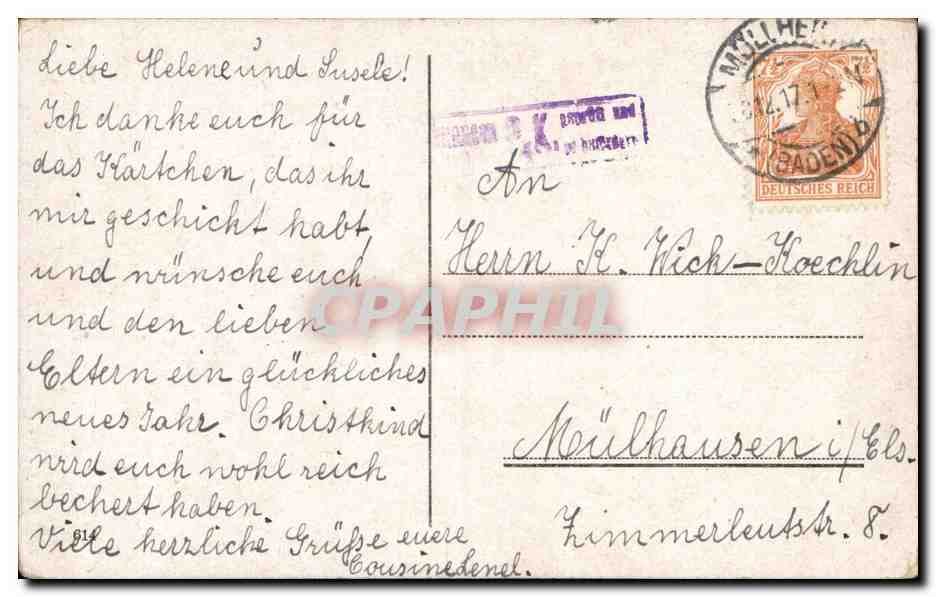 Liebe Helene und Susele!
Ich danke euch für
das Kärtchen, das ihr
mir geschickt habt,
und wünsche euch
und den lieben
Eltern ein glückliches
neues Jahr. Christkind
wird euch wohl reich
bechert haben.
Viele herzliche Grüsse euere
Cousine Lenel.
614
P. K.
MÜLLHEIM
12.17.
(BADEN) b
DEUTSCHES REICH
An
Herrn K. Wick-Koechlin
Mülhausen i/Els.
Zimmerleutstr. 8.
CPAPHIL